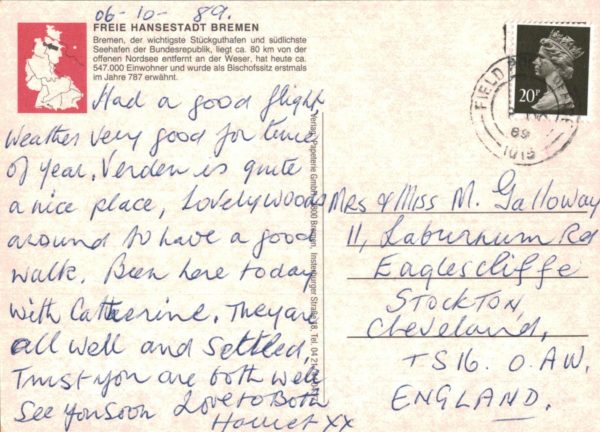 06-10-89.
FREIE HANSESTADT BREMEN
Bremen, der wichtigste Stückguthafen und südlichste
Seehafen der Bundesrepublik, liegt ca. 80 km von der
offenen Nordsee entfernt an der Weser, hat heute ca.
547.000 Einwohner und wurde als Bischofssitz erstmals
im Jahre 787 erwähnt.
Had a good flight,
Weather very good for time
of year, Verden is quite
a nice place, Lovely woods
around to have a good
walk. Been here today
with Catherine. They are
all well and settled,
Trust you are both well
See you soon Love to Both
Harriet XX
Verlag: Papeterie GmbH, 2800 Bremen, Insterburger Straße 18, Tel. 04 21
20P
FIELD
89
1015
Mrs & Miss M. Galloway
11, Laburnum Rd
Eaglescliffe
STOCKTON,
Cleveland,
TS16. 0AW.
ENGLAND.